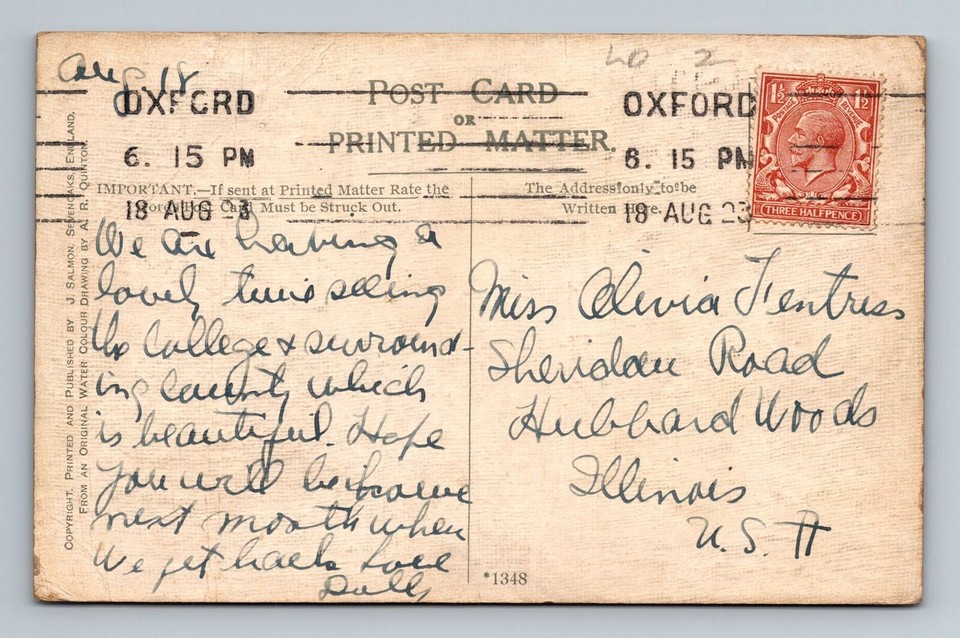 LO 2
Aug 18
POST CARD
OR
PRINTED MATTER.
OXFORD
6. 15 PM
18 AUG 23
OXFORD
6. 15 PM
18 AUG 23
1½ 1½
POSTAGE REVENUE
THREE HALFPENCE
IMPORTANT.—If sent at Printed Matter Rate the
Words Post Card Must be Struck Out.
The Address only to be
Written Here.
COPYRIGHT. PRINTED AND PUBLISHED BY J. SALMON, SEVENOAKS, ENGLAND.
FROM AN ORIGINAL WATER COLOUR DRAWING BY A. R. QUINTON.
We are having a
lovely time seeing
the College & surround-
ing county which
is beautiful. Hope
you will be home
next month when
we get back Love
Dolly
Miss Olivia Fentress
Sheridan Road
Hubbard Woods
Illinois
U. S. A
*1348